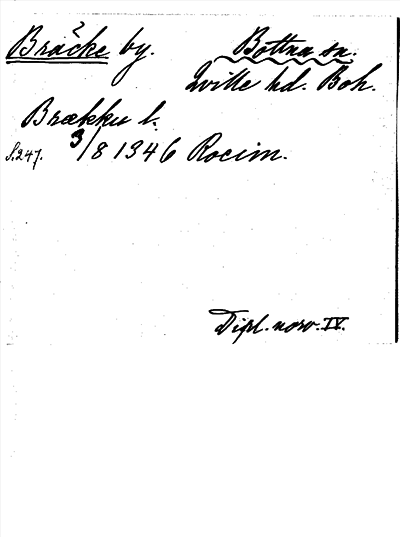 Bräcke by. Bottna sn.
Qville hd. Boh.
Brækku l.
S.247. 3/8 1346 Rocim.
Dipl. norv. IV.